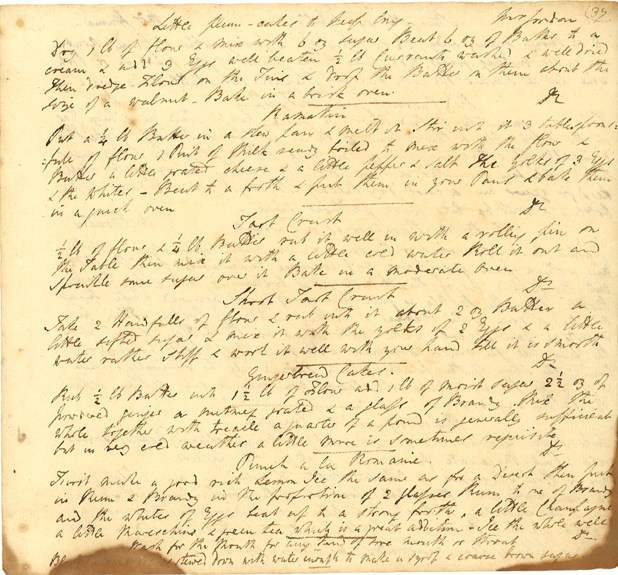 Little plum-cakes to keep long. Mrs Jordan 37
Dry 1 lb of flour & mix with 6 oz sugar Beat 6 oz of Butter to a
cream & add 3 Eggs well beaten ½ lb Currants washed & well dried
then dredge flour on the Tins & drop the Batter on them about the
size of a walnut - Bake in a brisk oven.
Ramakin Do
Put a ¼ lb Butter in a stew pan & melt it Stir into it 3 tablespoons-
full of flour 1 Pint of Milk ready boiled to mix with the flour &
Butter a little grated cheese & a little pepper & salt the yolks of 3 Eggs
& the whites - Beat to a froth & put them in your Pans & bake them
in a quick oven
Tart Crust Do
½ lb of flour & ¼ lb Butter rub it well in with a rolling pin on
the Table then mix it with a little cold water Roll it out and
Sprinkle some sugar over it Bake in a moderate oven
Short Tart Crust Do
Take 2 Handfulls of flour & rub into it about 2 oz Butter a
little sifted sugar & mix it with the yolks of 2 Eggs & a little
water rather stiff & work it well with your hand till it is smooth
Gingerbread Cakes. Do
Put ½ lb Butter into 1½ lb of flour add 1 lb of moist sugar 2½ oz of
powdered ginger a nutmeg grated & a glass of Brandy. Mix the
whole together with treacle a quarter of a pound is generally sufficient
but in very cold weather a little more is sometimes requisite
Punch a la Romaine. Do
First make a good rich Lemon Ice the same as for a Desert then put
in Rum & Brandy in the proportion of 2 glasses Rum to one of Brandy
and the whites of Eggs beat up to a strong froth, a little Champagne
a little Maraschino & green tea which is a great addition - Ice the whole well
Wash for the Mouth for any kind of sore mouth or throat Do
stewed down with water enough to make a syrop & coarse brown sugar